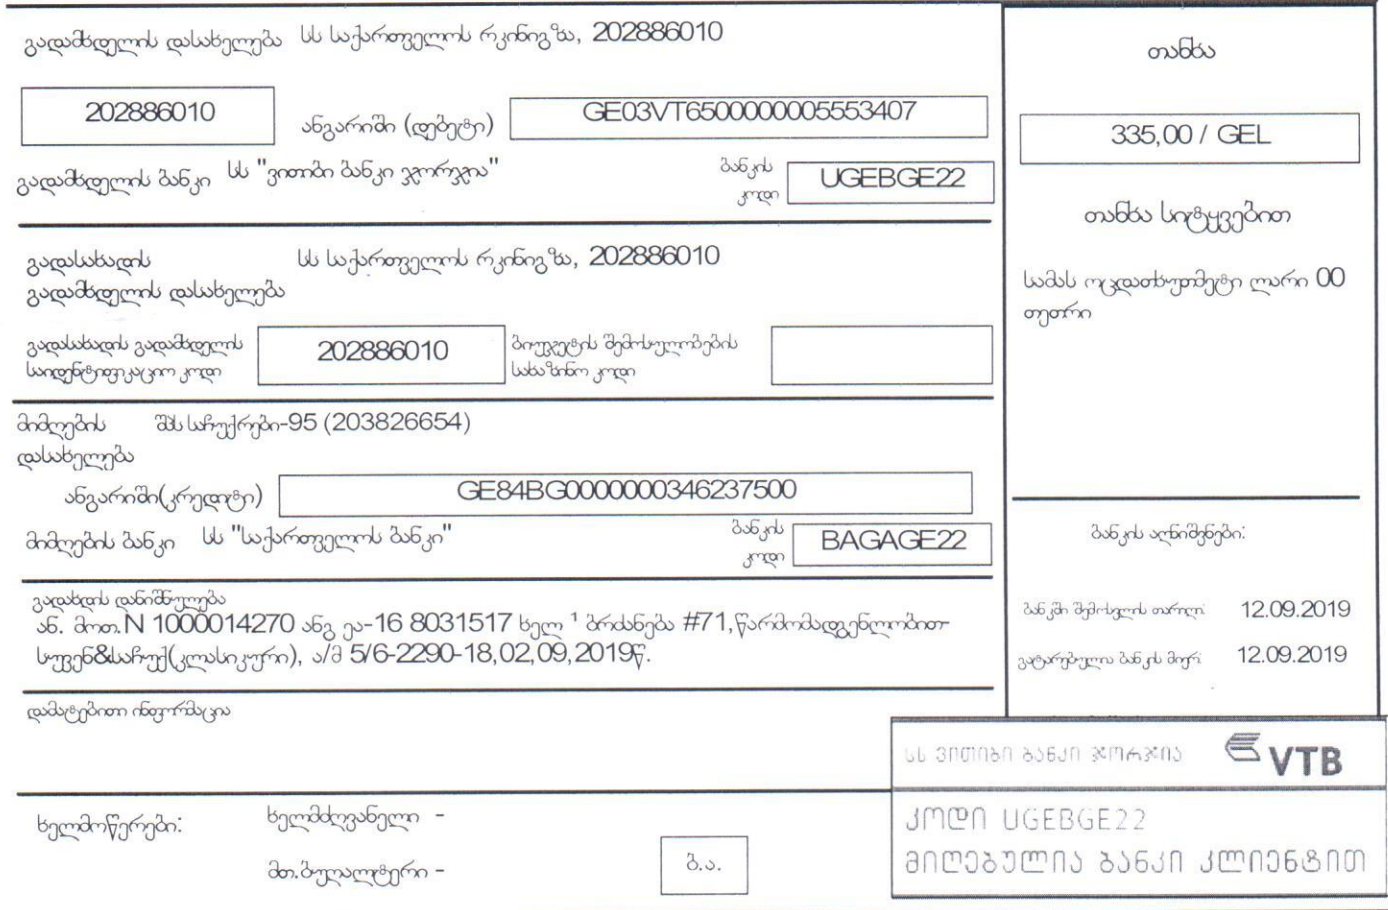 გადამხდელის დასახელება სს საქართველოს რკინიგზა, 202886010
202886010 ანგარიში (დებეტი) GE03VT6500000005553407
გადამხდელის ბანკი სს "ვითიბი ბანკი ჯორჯია" ბანკის კოდი UGEBGE22
გადასახადის სს საქართველოს რკინიგზა, 202886010
გადამხდელის დასახელება
გადასახადის გადამხდელის 202886010 ბიუჯეტის შემოსულობების
საიდენტიფიკაციო კოდი სახაზინო კოდი
მიმღების შპს საჩუქრები-95 (203826654)
დასახელება
ანგარიში(კრედიტი) GE84BG0000000346237500
მიმღების ბანკი სს "საქართველოს ბანკი" ბანკის კოდი BAGAGE22
გადახდის დანიშნულება
ან. მოთ.N 1000014270 ანგ ეა-16 8031517 ხელ,¹ ბრძანება #71,წარმომადგენლობით-
სუვენ&საჩუქ(კლასიკური), ა/მ 5/6-2290-18,02,09,2019წ.
დამატებითი ინფორმაცია
ხელმოწერები: ხელმძღვანელი -
მთ.ბუღალტერი -
ბ.ა.
თანხა
335,00 / GEL
თანხა სიტყვებით
სამას ოცდათხუთმეტი ლარი 00
თეთრი
ბანკის აღნიშვნები:
ბანკში შემოსვლის თარიღი: 12.09.2019
გატარებულია ბანკის მიერ: 12.09.2019
სს ვითიბი ბანკი ჯორჯია VTB
კოდი UGEBGE22
მიღებულია ბანკი კლიენტით